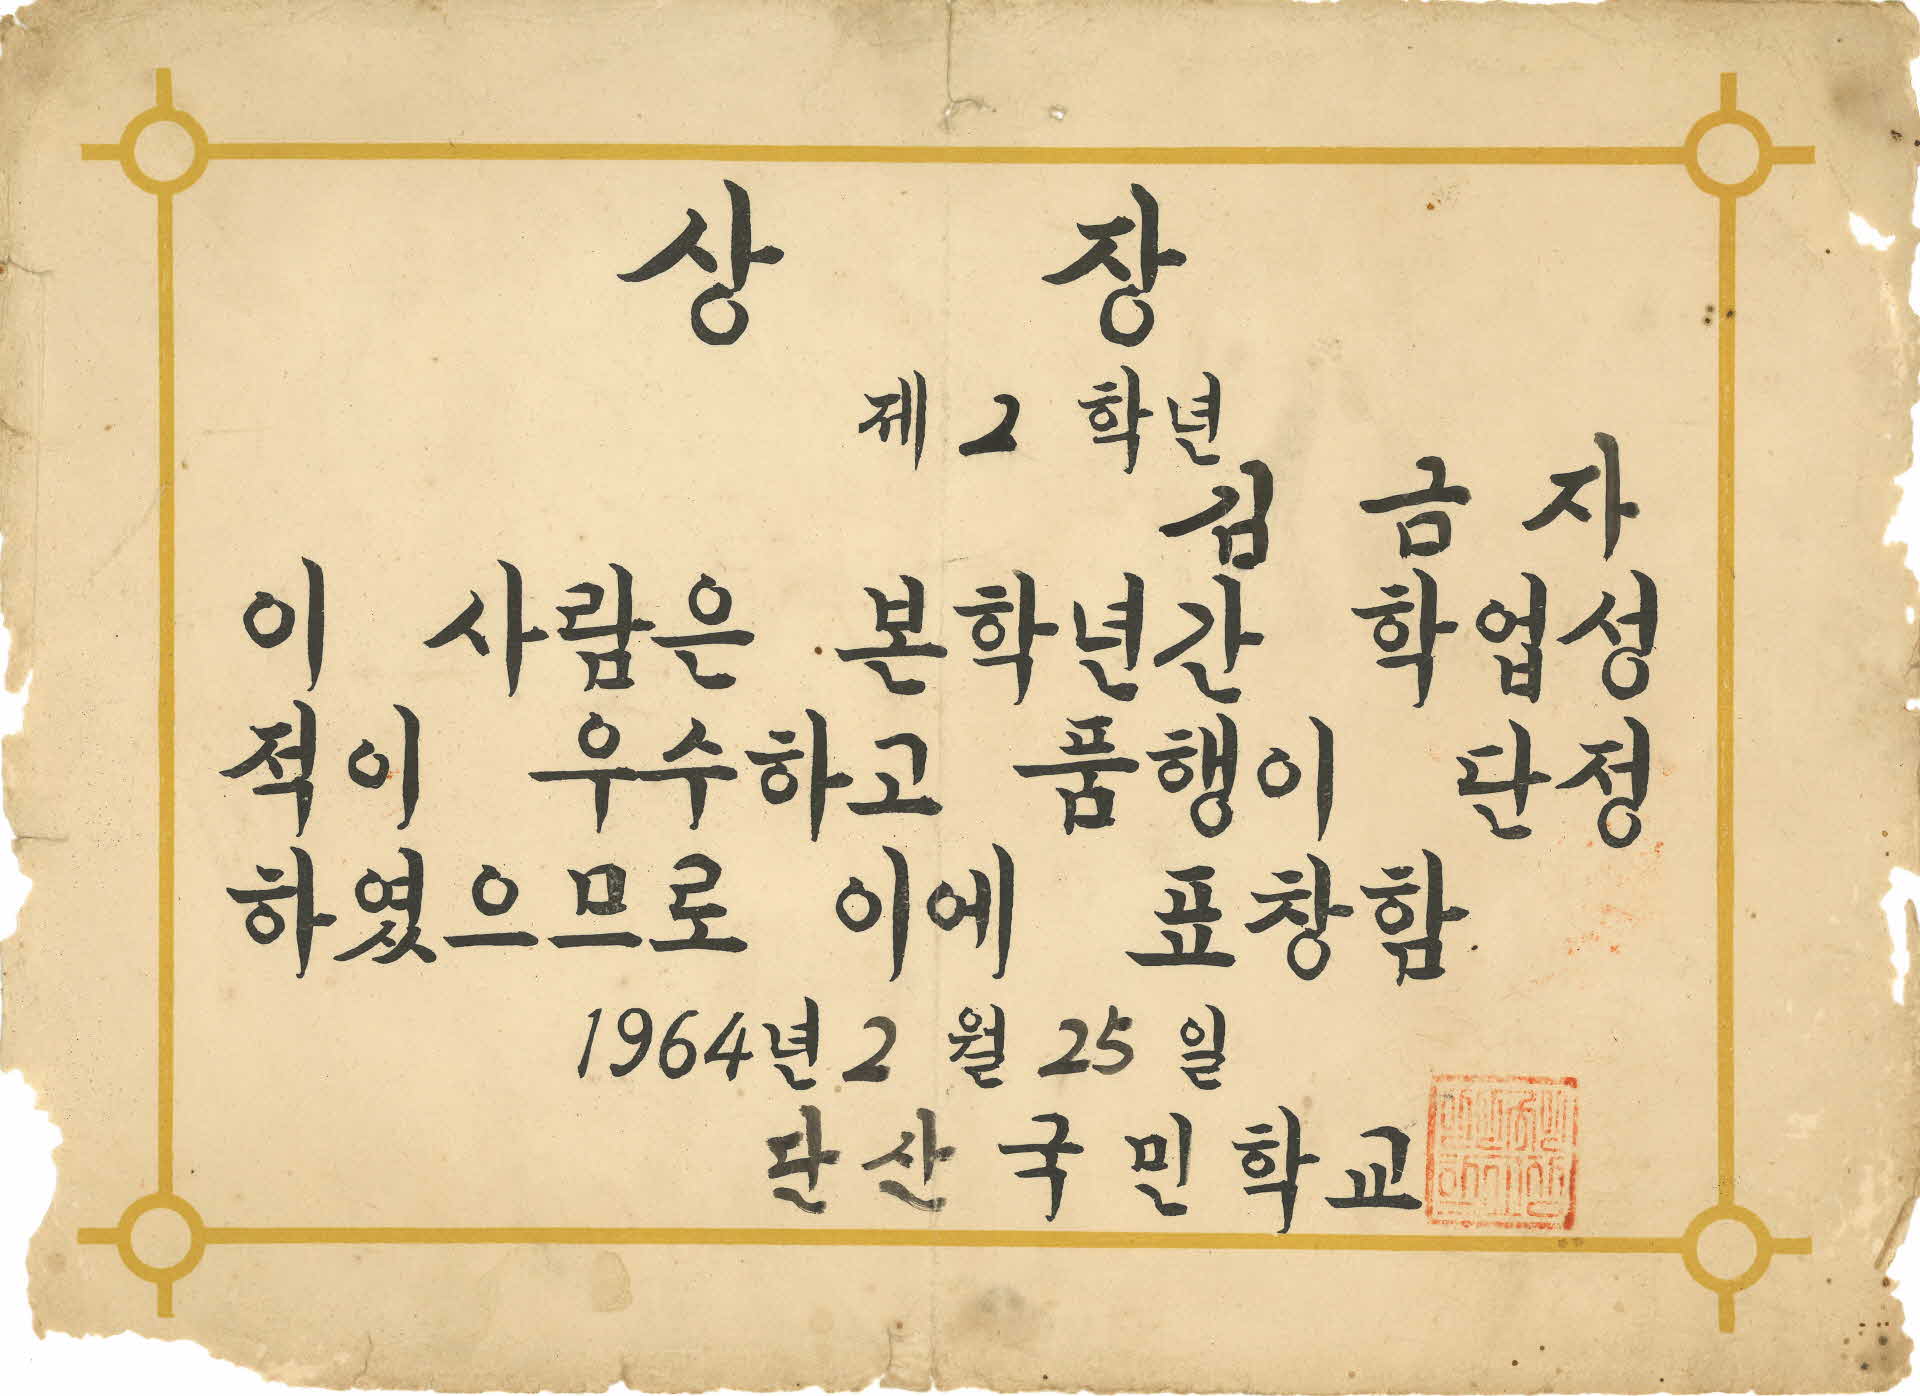 상 장
제 2 학년
김 금 자
이 사람은 본학년간 학업성
적이 우수하고 품행이 단정
하였으므로 이에 표창함
1964년 2 월 25 일
단산 국민학교